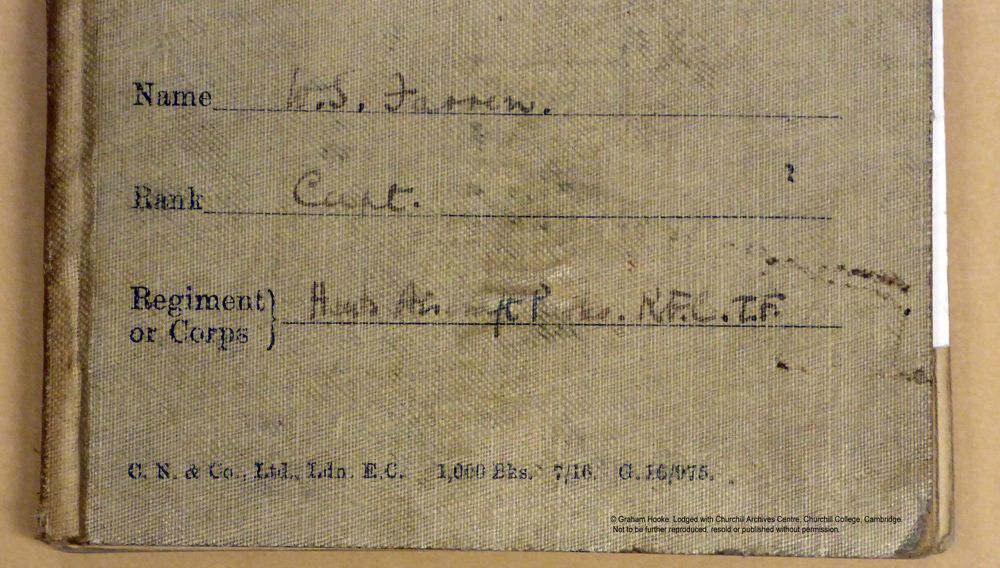 Name W.S. Farren.
Rank Capt.
Regiment
or Corps } Hants Aircraft Parks. R.F.C. T.F.
C. N. & Co., Ltd., Ldn. E.C. 1,000 Bks. 7/16. G.16/975.
© Graham Hooke. Lodged with Churchill Archives Centre, Churchill College, Cambridge.
Not to be further reproduced, resold or published without permission.